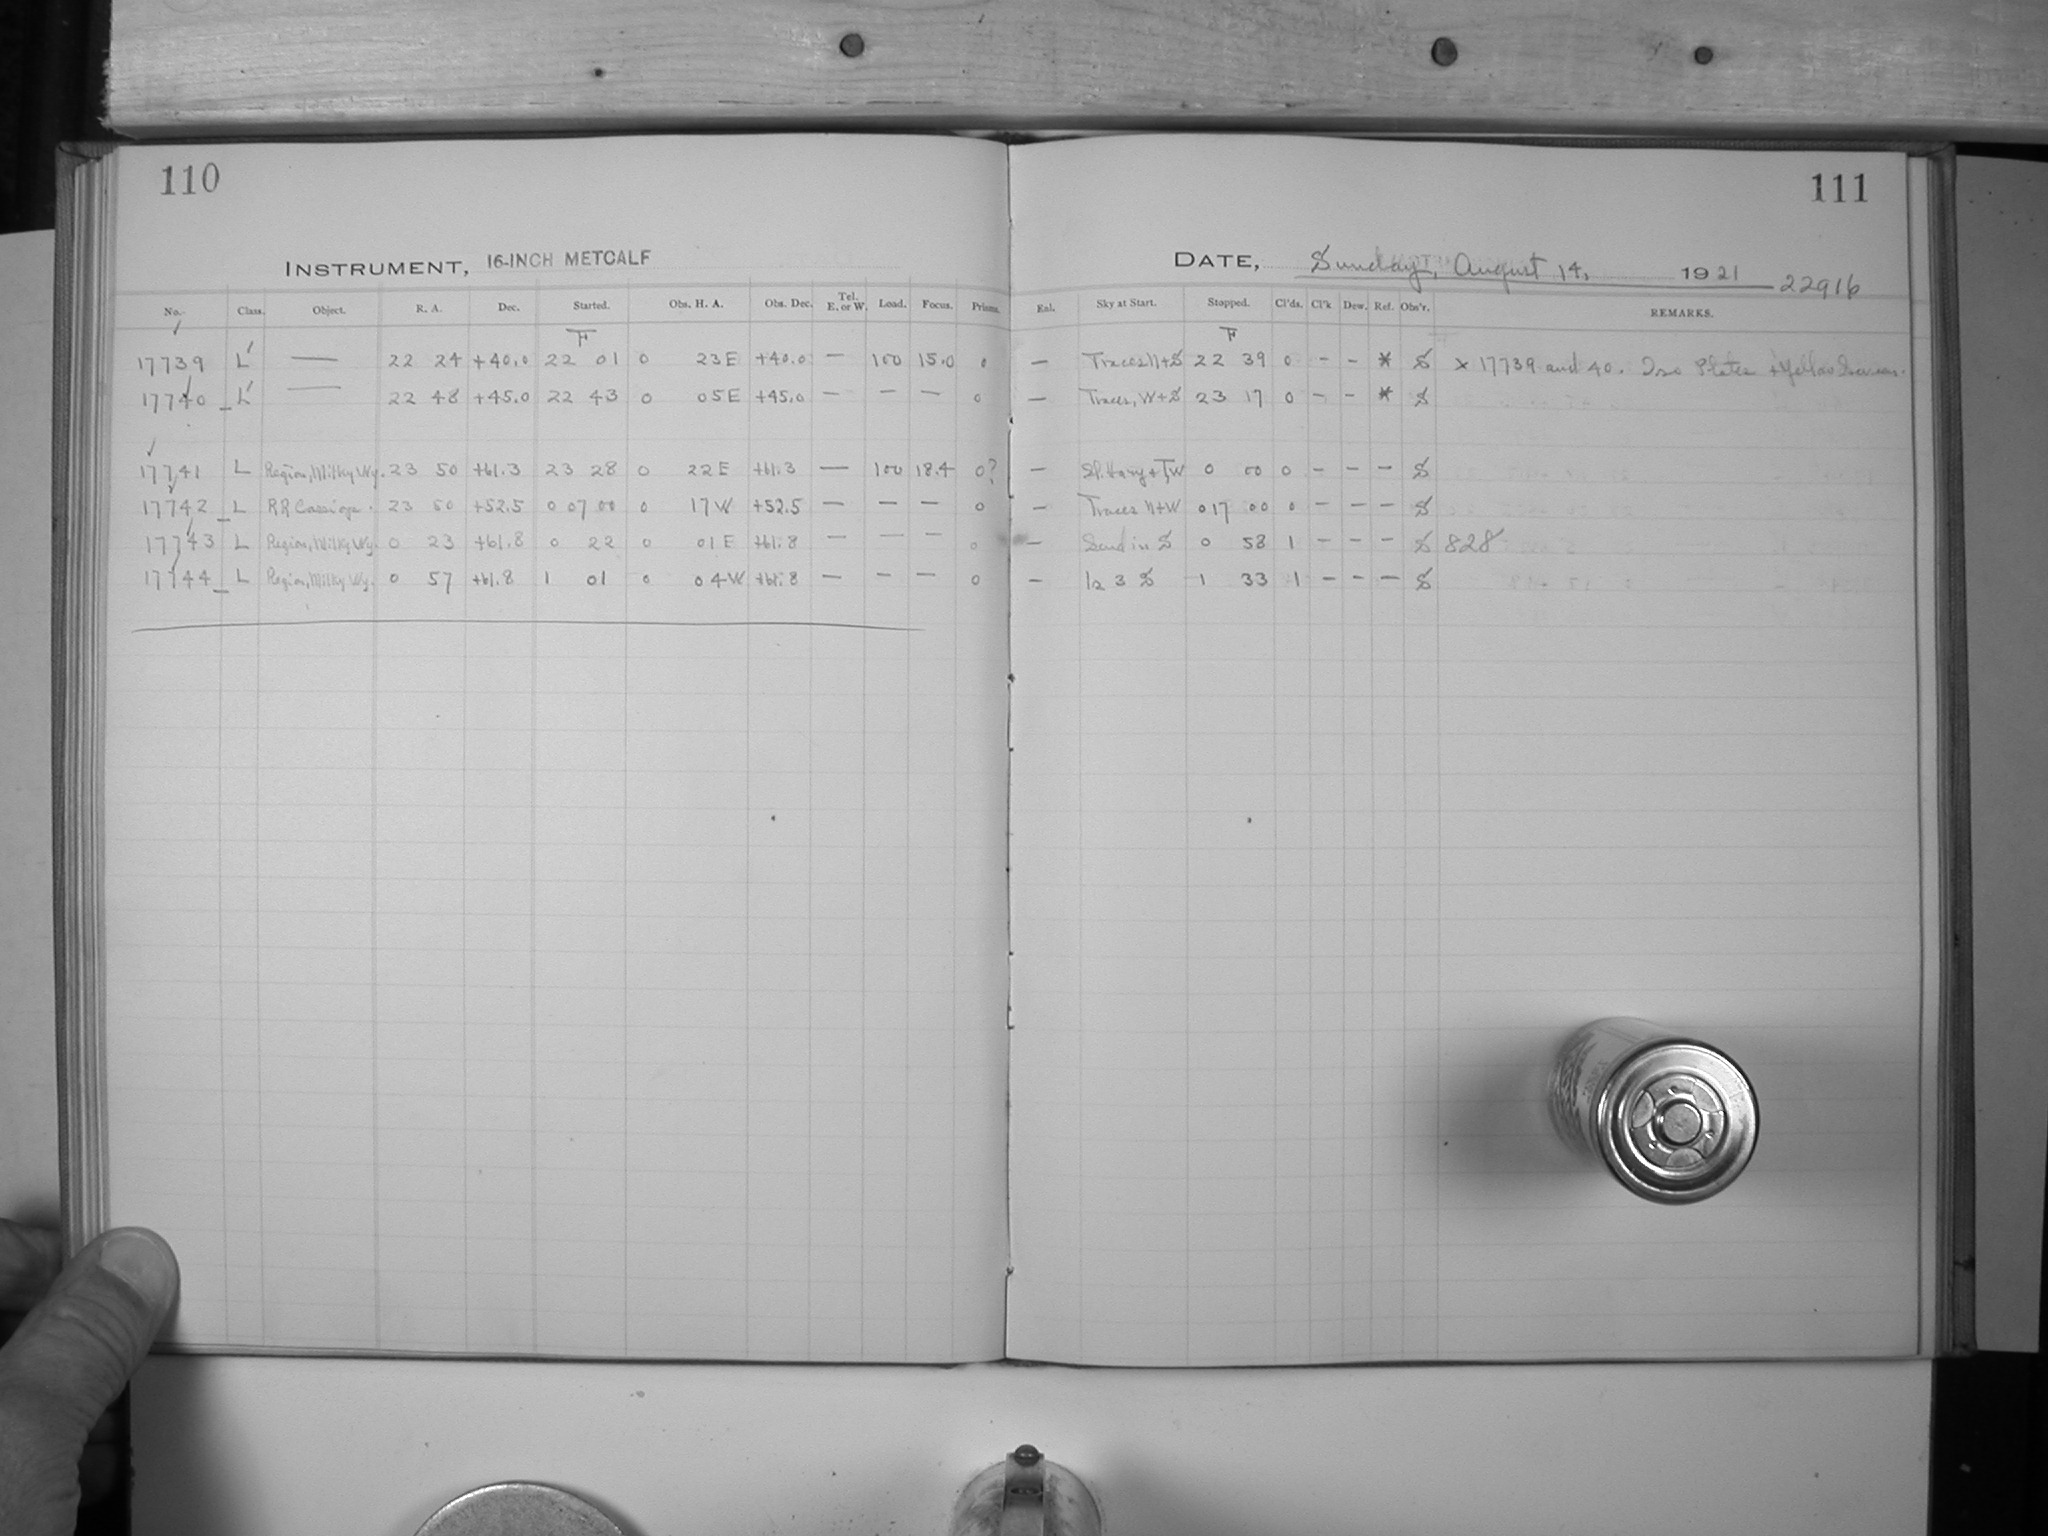 110
111
INSTRUMENT, 16-INCH METCALF
DATE, Sunday, August 14, 1921 22916
No. Class. Object. R. A. Dec. Started. Obs. H. A. Obs. Dec. Tel. E. or W. Load. Focus. Prisms. Enl. Sky at Start. Stopped. Cl'ds. Cl'k Dew. Ref. Obs'r. REMARKS.
F F
17739 L' — 22 24 +40.0 22 01 0 23 E +40.0 — 100 15.0 0 — Traces N+S 22 39 0 - - * S x 17739 and 40. Iso Plates + Yellow Screens.
17740 L' — 22 48 +45.0 22 43 0 05 E +45.0 — — — 0 — Traces, W+S 23 17 0 - - * S
17741 L Region, Milky Wy. 23 50 +61.3 23 28 0 22 E +61.3 — 100 18.4 0? — Sl. Hazy + T, W 0 00 0 - - - S
17742 L RR Cassiope. 23 50 +52.5 0 07 00 0 17 W +52.5 — — — 0 — Traces N+W 0 17 00 0 - - - S
17743 L Region, Milky Wy. 0 23 +61.8 0 22 0 01 E +61.8 — — — 0 — in S 0 58 1 - - - S 828
17744 L Region, Milky Wy. 0 57 +61.8 1 01 0 04 W +61.8 — — — 0 — 3 S 1 33 1 - - - S